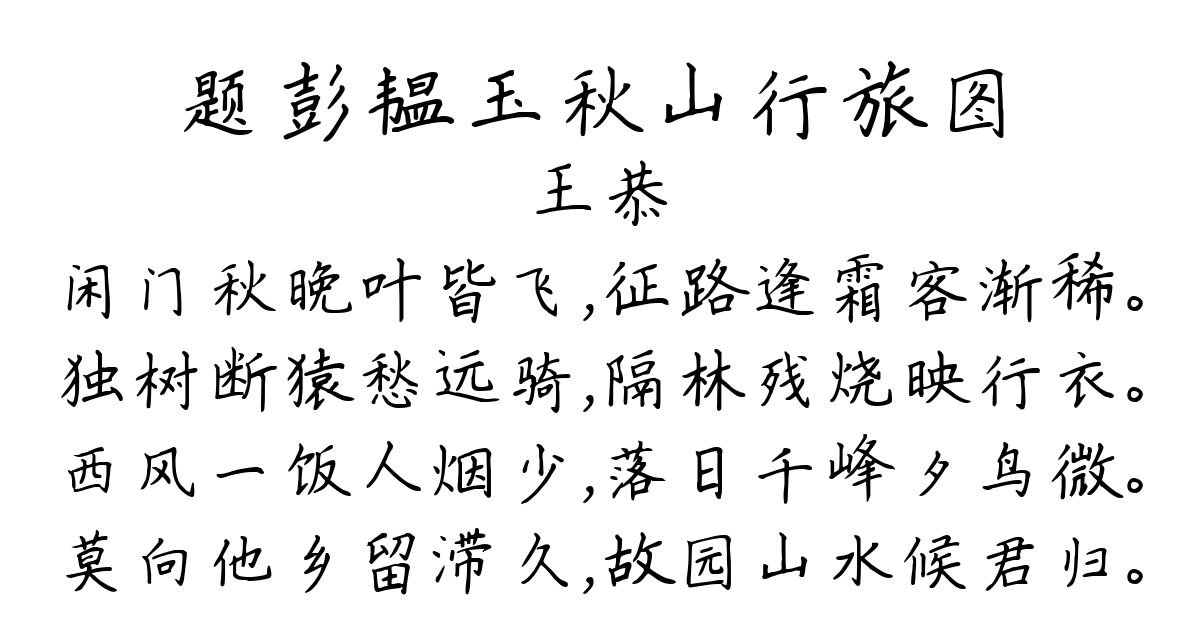 题彭韫玉秋山行旅图
王恭
闲门秋晚叶皆飞,征路逢霜客渐稀。
独树断猿愁远骑,隔林残烧映行衣。
西风一饭人烟少,落日千峰夕鸟微。
莫向他乡留滞久,故园山水候君归。